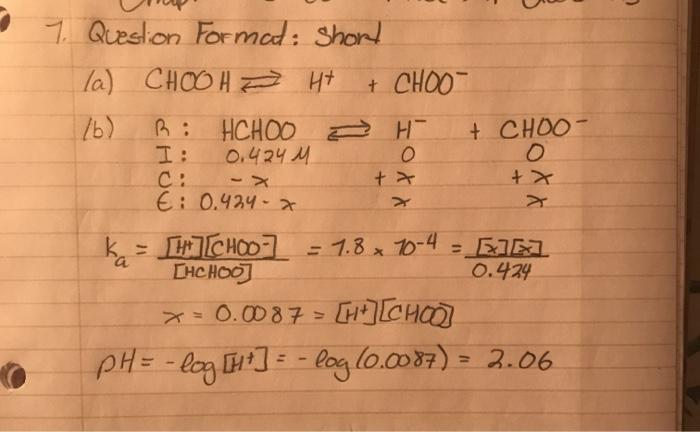 7. Question Format: Short
1a) CHOOH ⇌ H+ + CHOO⁻
1b) R: HCHOO ⇌ H⁻ + CHOO⁻
I: 0.424 M 0 0
C: -x +x +x
E: 0.424-x x x
ka = [H+][CHOO⁻] / [HCHOO] = 1.8 x 10-4 = [x][x] / 0.424
x = 0.0087 = [H+][CHOO]
pH = -log [H+] = -log (0.0087) = 2.06